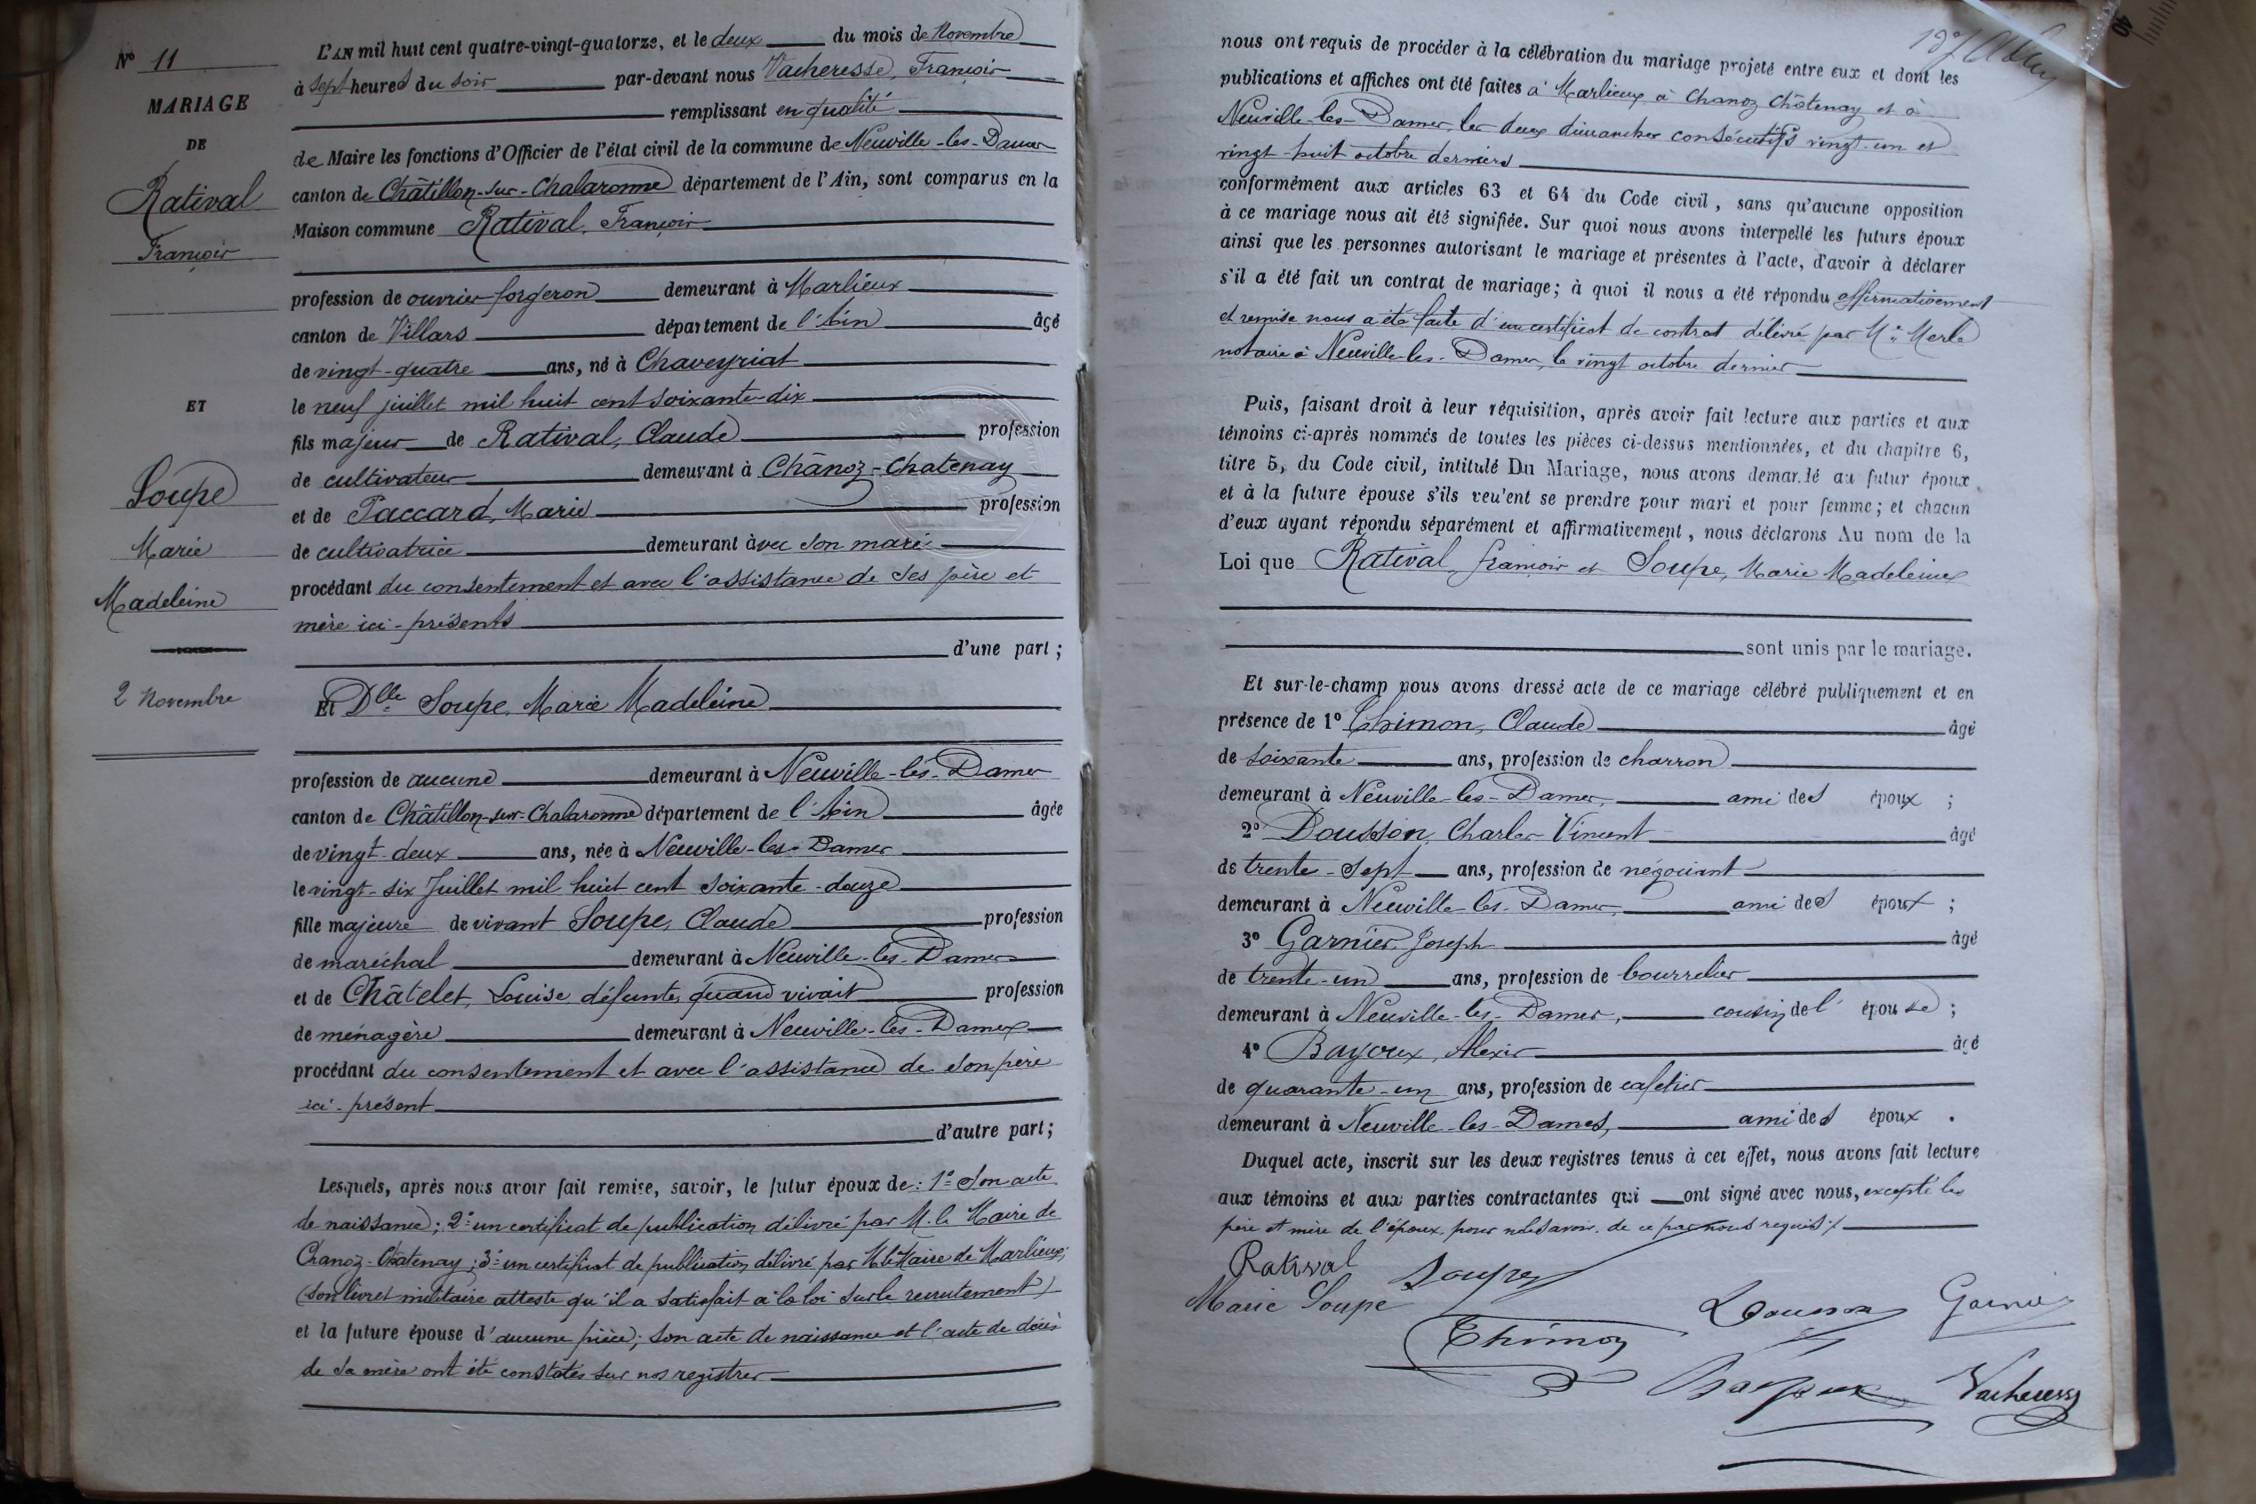 N° 11
MARIAGE
DE
Ratival
François
ET
Soupe
Marie
Madeleine
2 Novembre
L'AN mil huit cent quatre-vingt-quatorze, et le deux du mois de Novembre
à sept heures du soir par-devant nous Vacheresse, François
remplissant en qualité
de Maire les fonctions d'Officier de l'état civil de la commune de Neuville-les-Dames
canton de Châtillon-sur-Chalaronne département de l'Ain, sont comparus en la
Maison commune Ratival, François
profession de ouvrier forgeron demeurant à Marlieux
canton de Villars département de l'Ain âgé
de vingt-quatre ans, né à Chaveyriat
le neuf juillet mil huit cent soixante-dix
fils majeur de Ratival, Claude profession
de cultivateur demeurant à Chânoz-Chatenay
et de Paccard, Marie profession
de cultivatrice demeurant avec son mari
procédant du consentement et avec l'assistance de ses père et
mère ici-présents
d'une part;
Et Dlle Soupe, Marie Madeleine
profession de aucune demeurant à Neuville-les-Dames
canton de Châtillon-sur-Chalaronne département de l'Ain âgée
de vingt-deux ans, née à Neuville-les-Dames
le vingt-six Juillet mil huit cent soixante-douze
fille majeure de vivant Soupe, Claude profession
de maréchal demeurant à Neuville-les-Dames
et de Châtelet, Louise défunte, quand vivait profession
de ménagère demeurant à Neuville-les-Dames
procédant du consentement et avec l'assistance de son père
ici-présent
d'autre part;
Lesquels, après nous avoir fait remise, savoir, le futur époux de: 1° son acte
de naissance; 2° un certificat de publication délivré par M. le Maire de
Chanoz-Chatenay; 3° un certificat de publication délivré par M. le Maire de Marlieux;
(son livret militaire atteste qu'il a satisfait à la loi sur le recrutement)
et la future épouse d'aucune pièce; son acte de naissance et l'acte de décès
de sa mère ont été constatés sur nos registres
nous ont requis de procéder à la célébration du mariage projeté entre eux et dont les
publications et affiches ont été faites à Marlieux, à Chanoz Châtenay et à
Neuville-les-Dames, les deux dimanches consécutifs vingt-un et
vingt-huit octobre derniers
conformément aux articles 63 et 64 du Code civil, sans qu'aucune opposition
à ce mariage nous ait été signifiée. Sur quoi nous avons interpellé les futurs époux
ainsi que les personnes autorisant le mariage et présentes à l'acte, d'avoir à déclarer
s'il a été fait un contrat de mariage; à quoi il nous a été répondu affirmativement
et remise nous a été faite d'un certificat de contrat délivré par Me Merle
notaire à Neuville-les-Dames, le vingt octobre dernier
Puis, faisant droit à leur réquisition, après avoir fait lecture aux parties et aux
témoins ci-après nommés de toutes les pièces ci-dessus mentionnées, et du chapitre 6,
titre 5, du Code civil, intitulé Du Mariage, nous avons demandé au futur époux
et à la future épouse s'ils veulent se prendre pour mari et pour femme; et chacun
d'eux ayant répondu séparément et affirmativement, nous déclarons Au nom de la
Loi que Ratival, françois et Soupe, Marie Madeleine
sont unis par le mariage.
Et sur-le-champ nous avons dressé acte de ce mariage célébré publiquement et en
présence de 1° Thimon, Claude âgé
de soixante ans, profession de charron
demeurant à Neuville-les-Dames, ami des époux ;
2° Dousson, Charles Vincent âgé
de trente-sept ans, profession de négociant
demeurant à Neuville-les-Dames, ami des époux ;
3° Garnier, Joseph âgé
de trente-un ans, profession de bourrelier
demeurant à Neuville-les-Dames, cousin de l'épouse ;
4° Bayoux, Alexis âgé
de quarante-un ans, profession de cafetier
demeurant à Neuville-les-Dames, ami des époux .
Duquel acte, inscrit sur les deux registres tenus à cet effet, nous avons fait lecture
aux témoins et aux parties contractantes qui ont signé avec nous, excepté les
père et mère de l'époux, pour ne le savoir, de ce par nous requis ./.
Ratival Soupe
Marie Soupe Dousson Garnier
Thimon
Bayoux Vacheresse